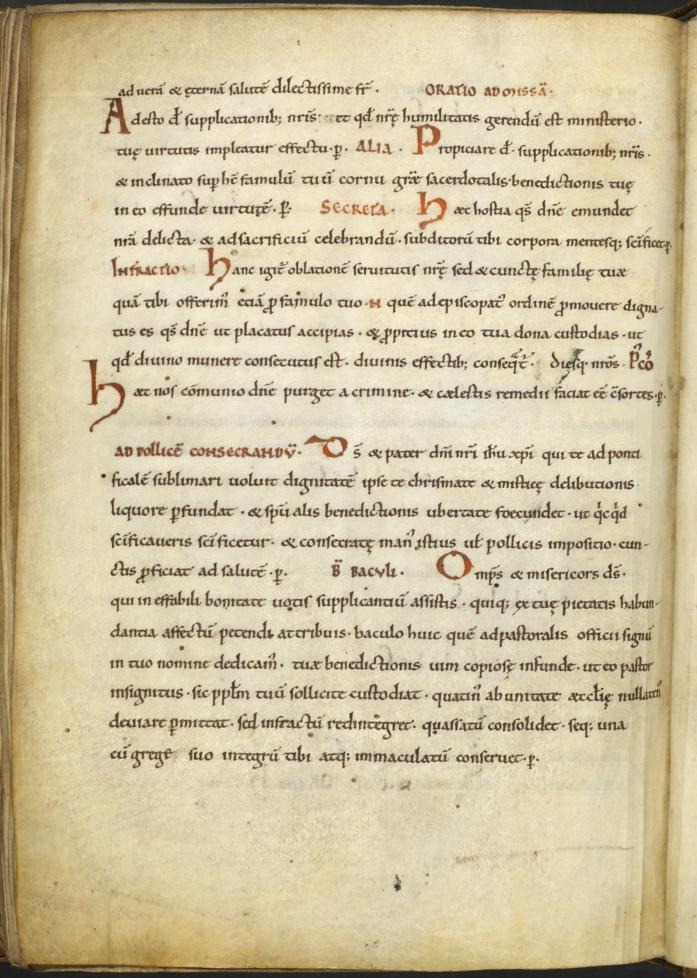 ad uerā & ęternā salutē dilectissime fr̄. ORATIO AD MISSĀ.
Adesto d̄s supplicationib; nr̄is. et qd̄ nr̄ę humilitatis gerendū est ministerio.
tuę uirtutis impleatur effectu. p̲. ALIA. Propiciare d̄. supplicationib; nr̄is.
& inclinato sup hc̄ famulū tuū cornu gr̄ae sacerdotalis. benedictionis tuę
in eo effunde uirtutē. p̲. SECRETA. Hęc hostia qs̄ dn̄e emundet
nr̄a delicta. & ad sacrificiū celebrandū. subditorū tibi corpora mentesq; sc̄ificet. p̲.
INFRACTIO Hanc igit̄ oblationē seruitutis nr̄ę sed & cunctę familię tuae
quā tibi offerim̄ etiā p̲ famulo tuo. N quē ad episcopat᾽ ordinē p̲mouere digna-
tus es qs̄ dn̄e ut placatus accipias. & p̲pitius in eo tua dona custodias. ut
qd̄ diuino munere consecutus est. diuinis effectib; conseq̄t᷑. diesq; nr̄os. P̄CŌ
Hęc nos cōmunio dn̄e purget a crimine. & cęlestis remedii faciat eē c̄sortes. p̲.
AD POLLICĒ CONSECRANDV̄. Ds̄ & pater dn̄i nr̄i ih̄u xp̄i qui te ad ponti
ficalē sublimari uoluit dignitatē ipse te chrismate & misticę delibutionis
liquore p̲fundat. & sp̄u alis benedictionis ubertate foecundet. ut qͥcqͥd
sc̄ificaueris sc̄ificetur. & consecratę man᾽ istius ut̄ pollicis impositio. cun-
ctis p̲ficiat ad salutē. p̲. B̄ BACULI. Omp̄s & misericors ds̄.
qui in effabili bonitate uotis supplicantiū assistis. quiq; ex tuę pietatis habun-
dantia affectū petendi attribuis. baculo huic quē ad pastoralis officii signū
in tuo nomine dedicam̄. tuae benedictionis uim copiosę infunde. ut eo pastor
insignitus. sic pp̄lm tuū sollicite custodiat. quatin̄ ab unitate ęcclīę nullaten᾽
deuiare p̲mittat. sed infractū redintegret. quassatū consolidet. seq; una
cū gregē suo integrū tibi atq; immaculatū conseruet. p̲.